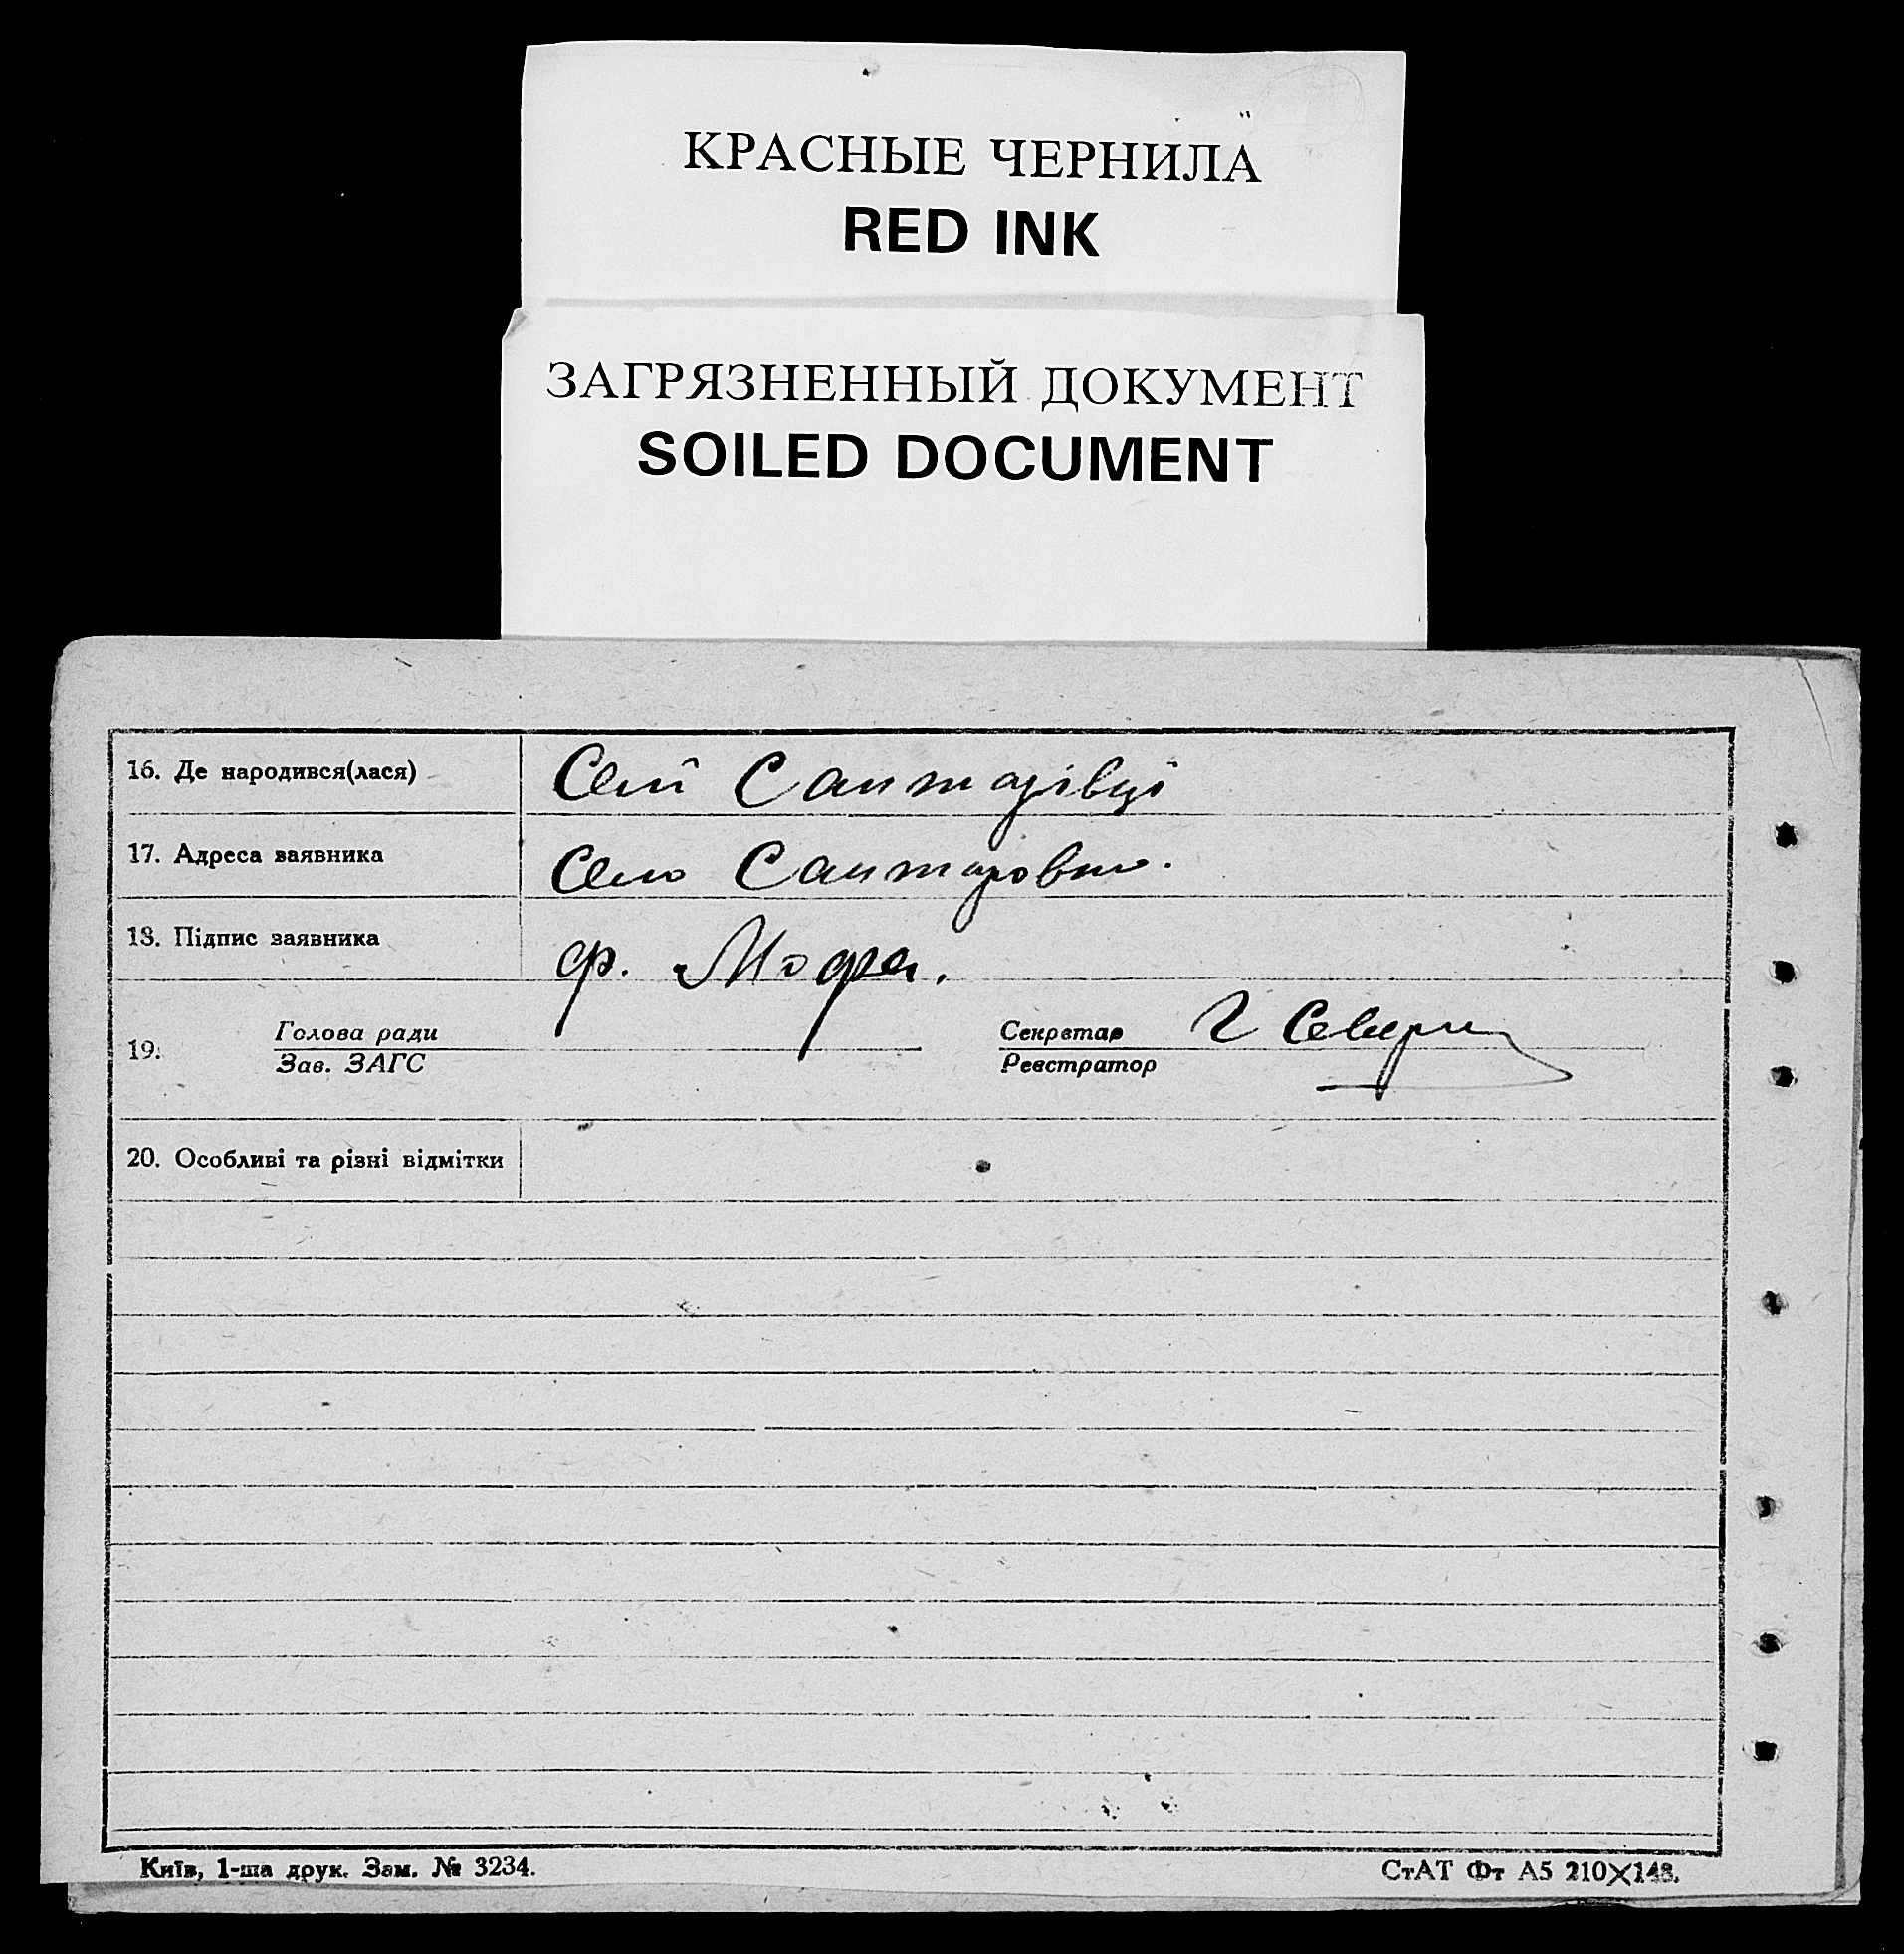 КРАСНЫЕ ЧЕРНИЛА
RED INK
ЗАГРЯЗНЕННЫЙ ДОКУМЕНТ
SOILED DOCUMENT
16. Де народився(лася)
17. Адреса заявника
Село
18. Підпис заявника
ф.
19. Голова ради
Зав. ЗАГС
Секретар
Реєстратор
20. Особливі та різні відмітки
Київ, 1-ша друк. Зам. № 3234.
СтАТ Фт А5 210×148.